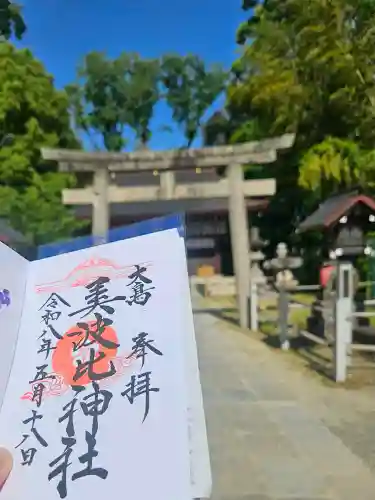 大島
奉拝
美波比神社
令和八年五月十八日